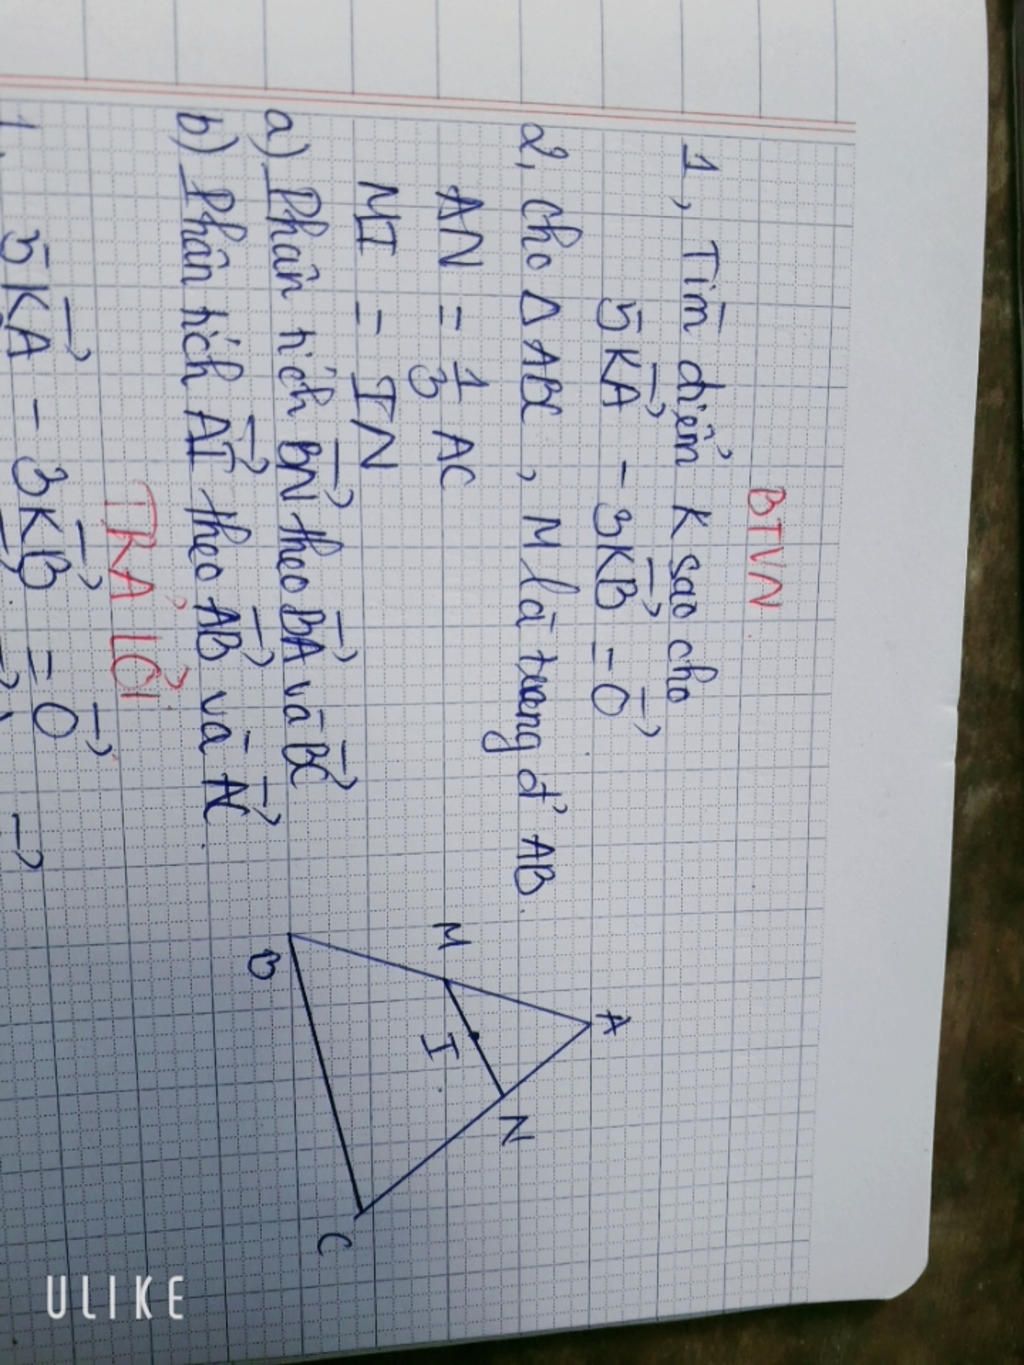 BTVN
1, Tìm điểm K sao cho
5KA⃗ - 3KB⃗ = 0⃗
2, cho Δ ABC, M là trung đ' AB.
AN = 1/3 AC
MI = IN
a) Phân tích BN⃗ theo BA⃗ và BC⃗
b) Phân tích AI⃗ theo AB⃗ và AC⃗.
TRẢ LỜI
1, 5KA⃗ - 3KB⃗ = 0⃗
A
M
N
I
B
C
ULIKE